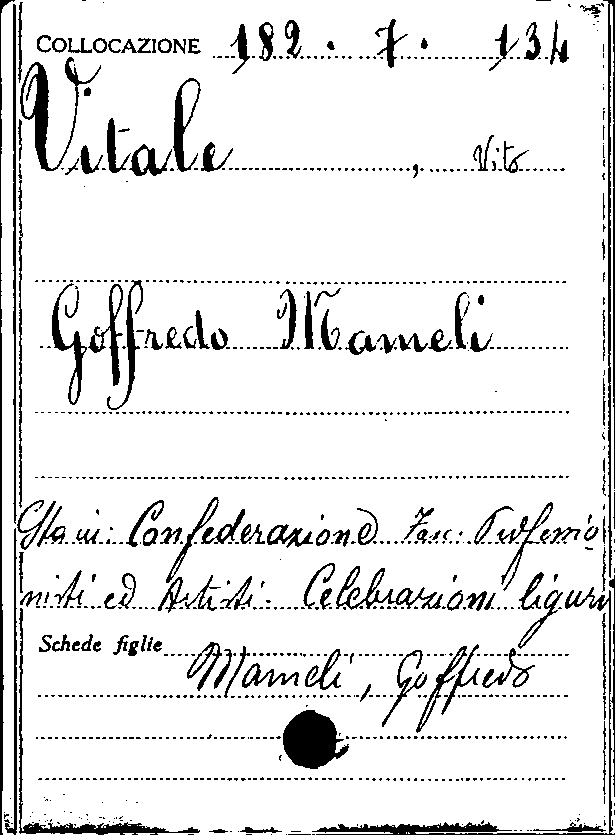 COLLOCAZIONE 182. 7. 134
Vitale, Vito
Goffredo Mameli
Sta in: Confederazione Fasc: Professio
nisti ed Artisti. Celebrazioni liguri
Schede figlie
Mameli, Goffredo